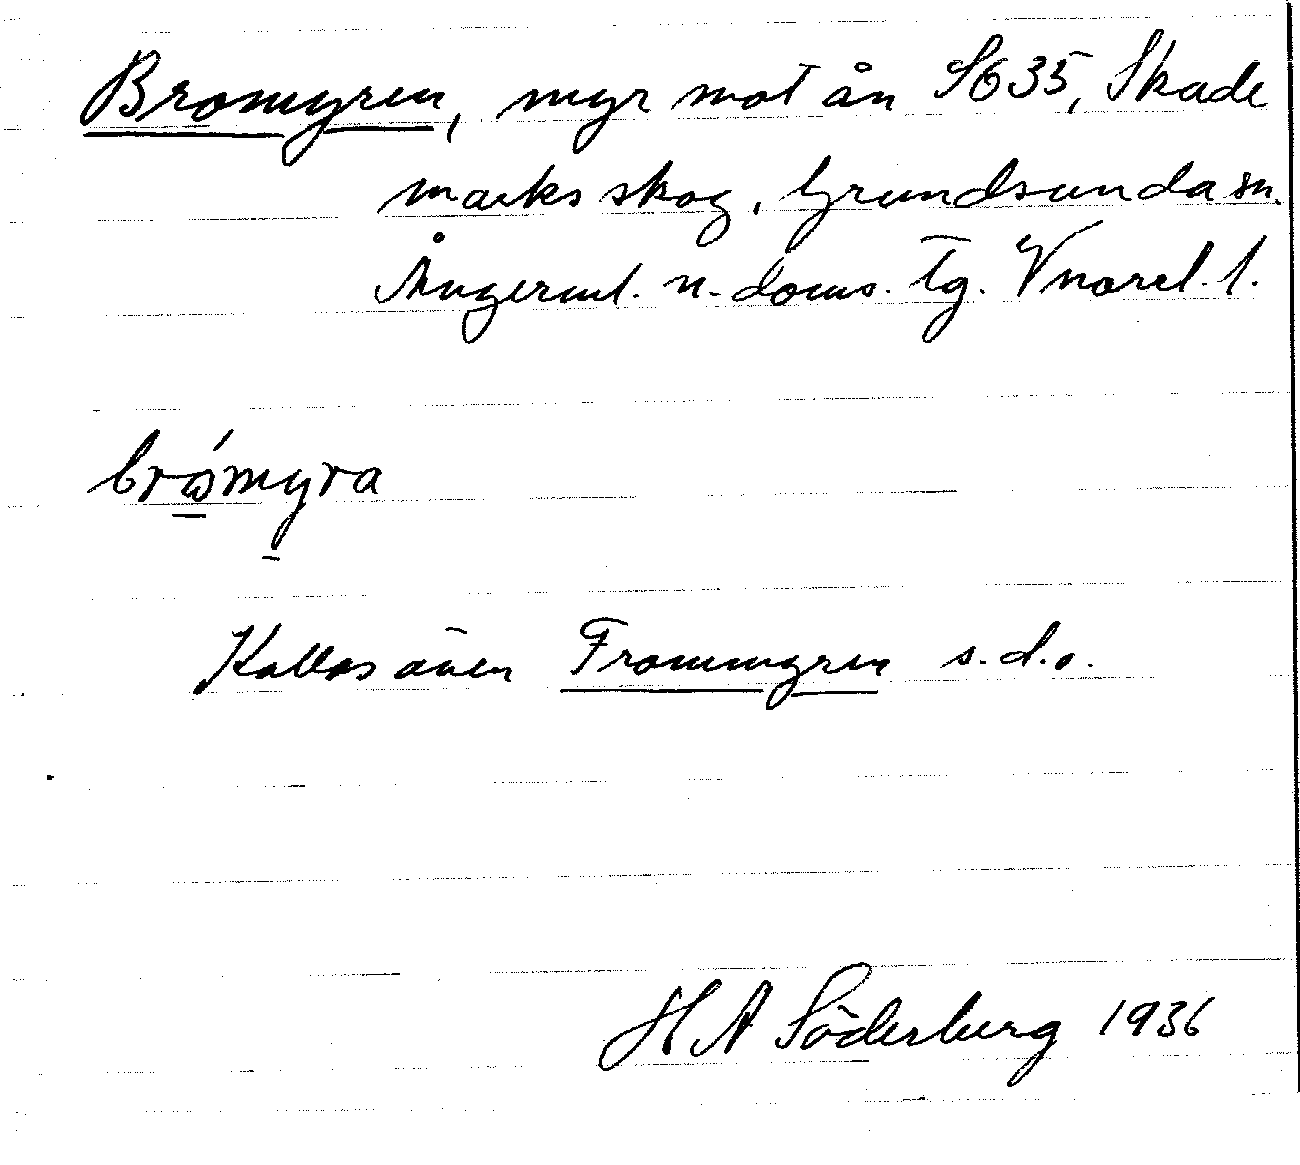 Bromyren, myr mot ån S635, Skade
marks skog, Grundsunda sn.
Ångerml. n. doms. Tg. Vnorrl. l.
brómyra
Kallas även Frommyren s.d.o.
H A Söderberg 1936